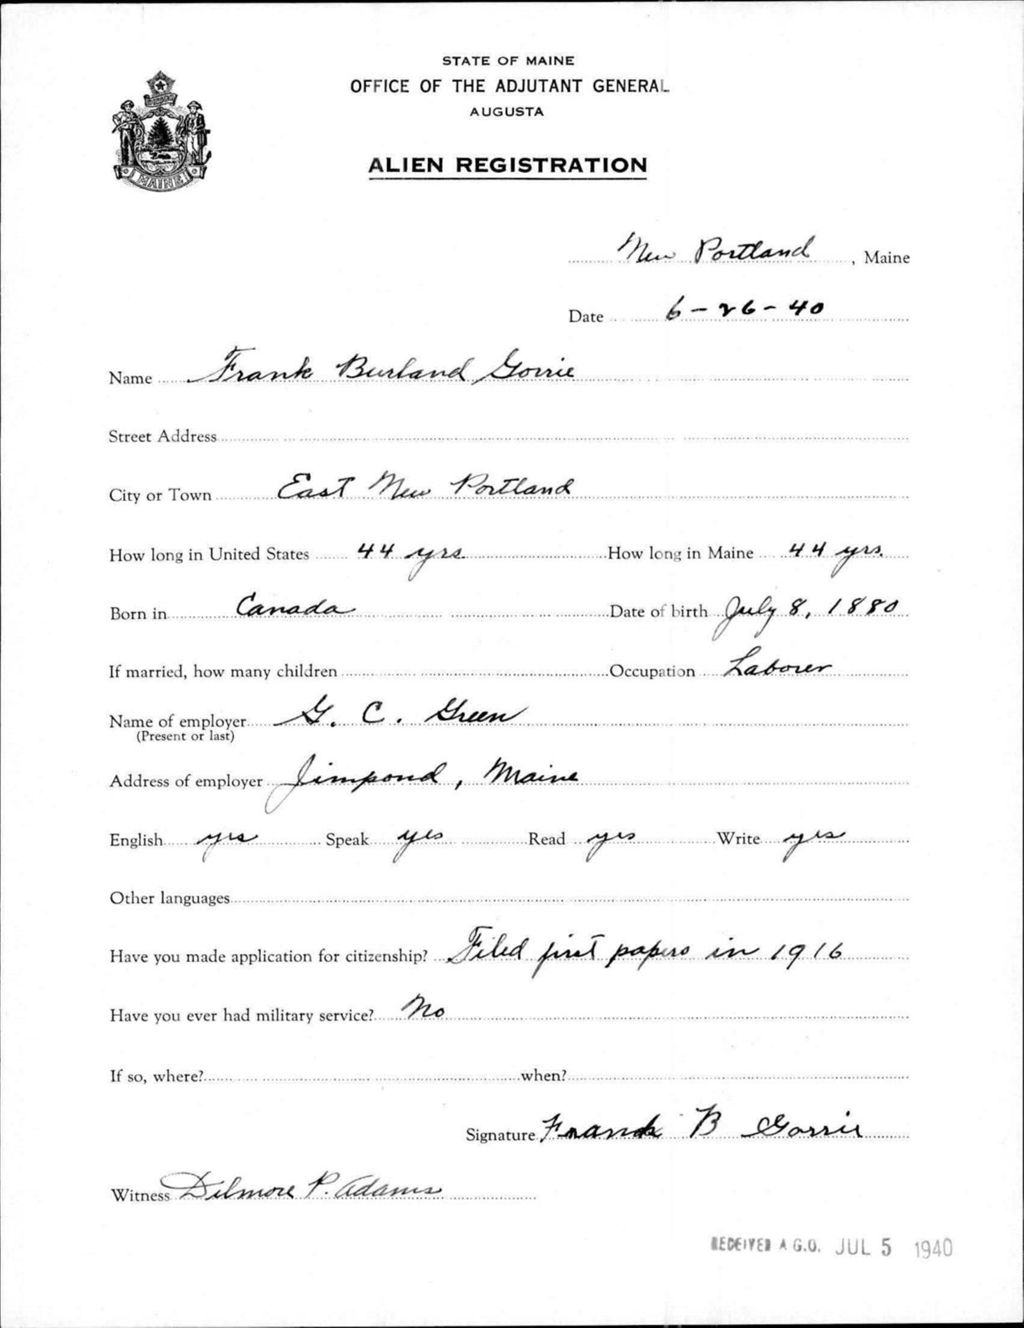 STATE OF MAINE
OFFICE OF THE ADJUTANT GENERAL
AUGUSTA
ALIEN REGISTRATION
MAINE
New Portland, Maine
Date 6-26-40
Name Frank Burland Gorrie
Street Address
City or Town East New Portland
How long in United States 44 yrs. How long in Maine 44 yrs.
Born in Canada Date of birth July 8, 1880
If married, how many children Occupation Laborer
Name of employer G. C. Green
(Present or last)
Address of employer Jimpond, Maine
English yes Speak yes Read yes Write yes
Other languages
Have you made application for citizenship? Filed first papers in 1916
Have you ever had military service? No
If so, where? when?
Signature Frank B Gorrie
Witness Dilmore P. Adams
RECEIVED A.G.O. JUL 5 1940